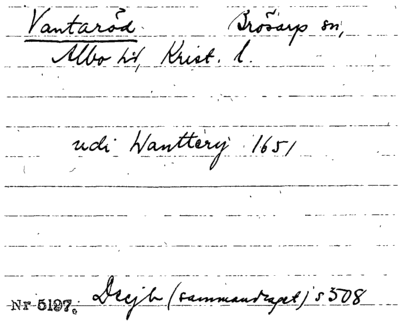 Vantaröd. Brösarp sn,
Albo hd, Krist. l.
udi Wanttery 1651
Dsejb (sammandraget) s 508
Nr 5197.